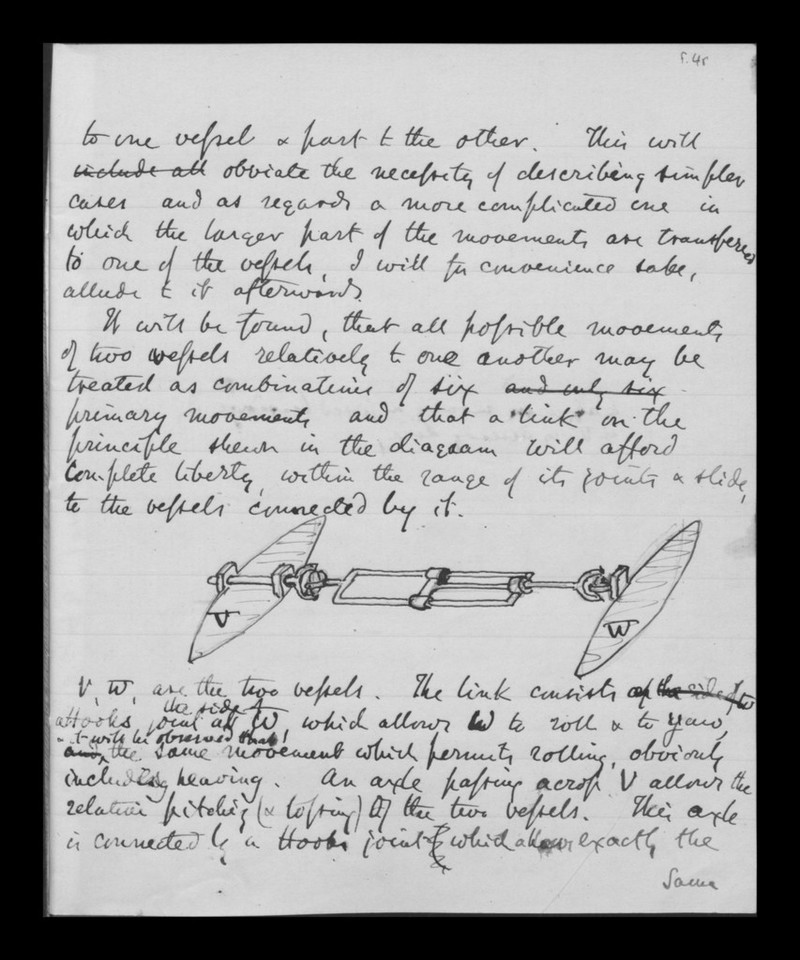 f.4r
to one vessel & part to the other. This will
include all obviate the necessity of describing simpler
cases and as regards a more complicated one in
which the larger part of the movements are transferred
to one of the vessels, I will for convenience sake,
allude to it afterwards.
It will be found, that all possible movements
of two vessels relatively to one another may be
treated as combinations of six and only six
primary movements and that a "link" on the
principle shewn in the diagram will afford
complete liberty, within the range of its joints & slide,
to the vessels connected by it.
V
W
V, W, are the two vessels. The link consists of the side of W
the side of
a Hooks joint at W, which allows W to roll & to yaw,
it will be observed that
and, the same movement which permits rolling, obviously
including heaving. An axle passing across V allows the
relative pitching (& tossing) of the two vessels. This axle
is connected by a Hooks joint which allows exactly the
Same